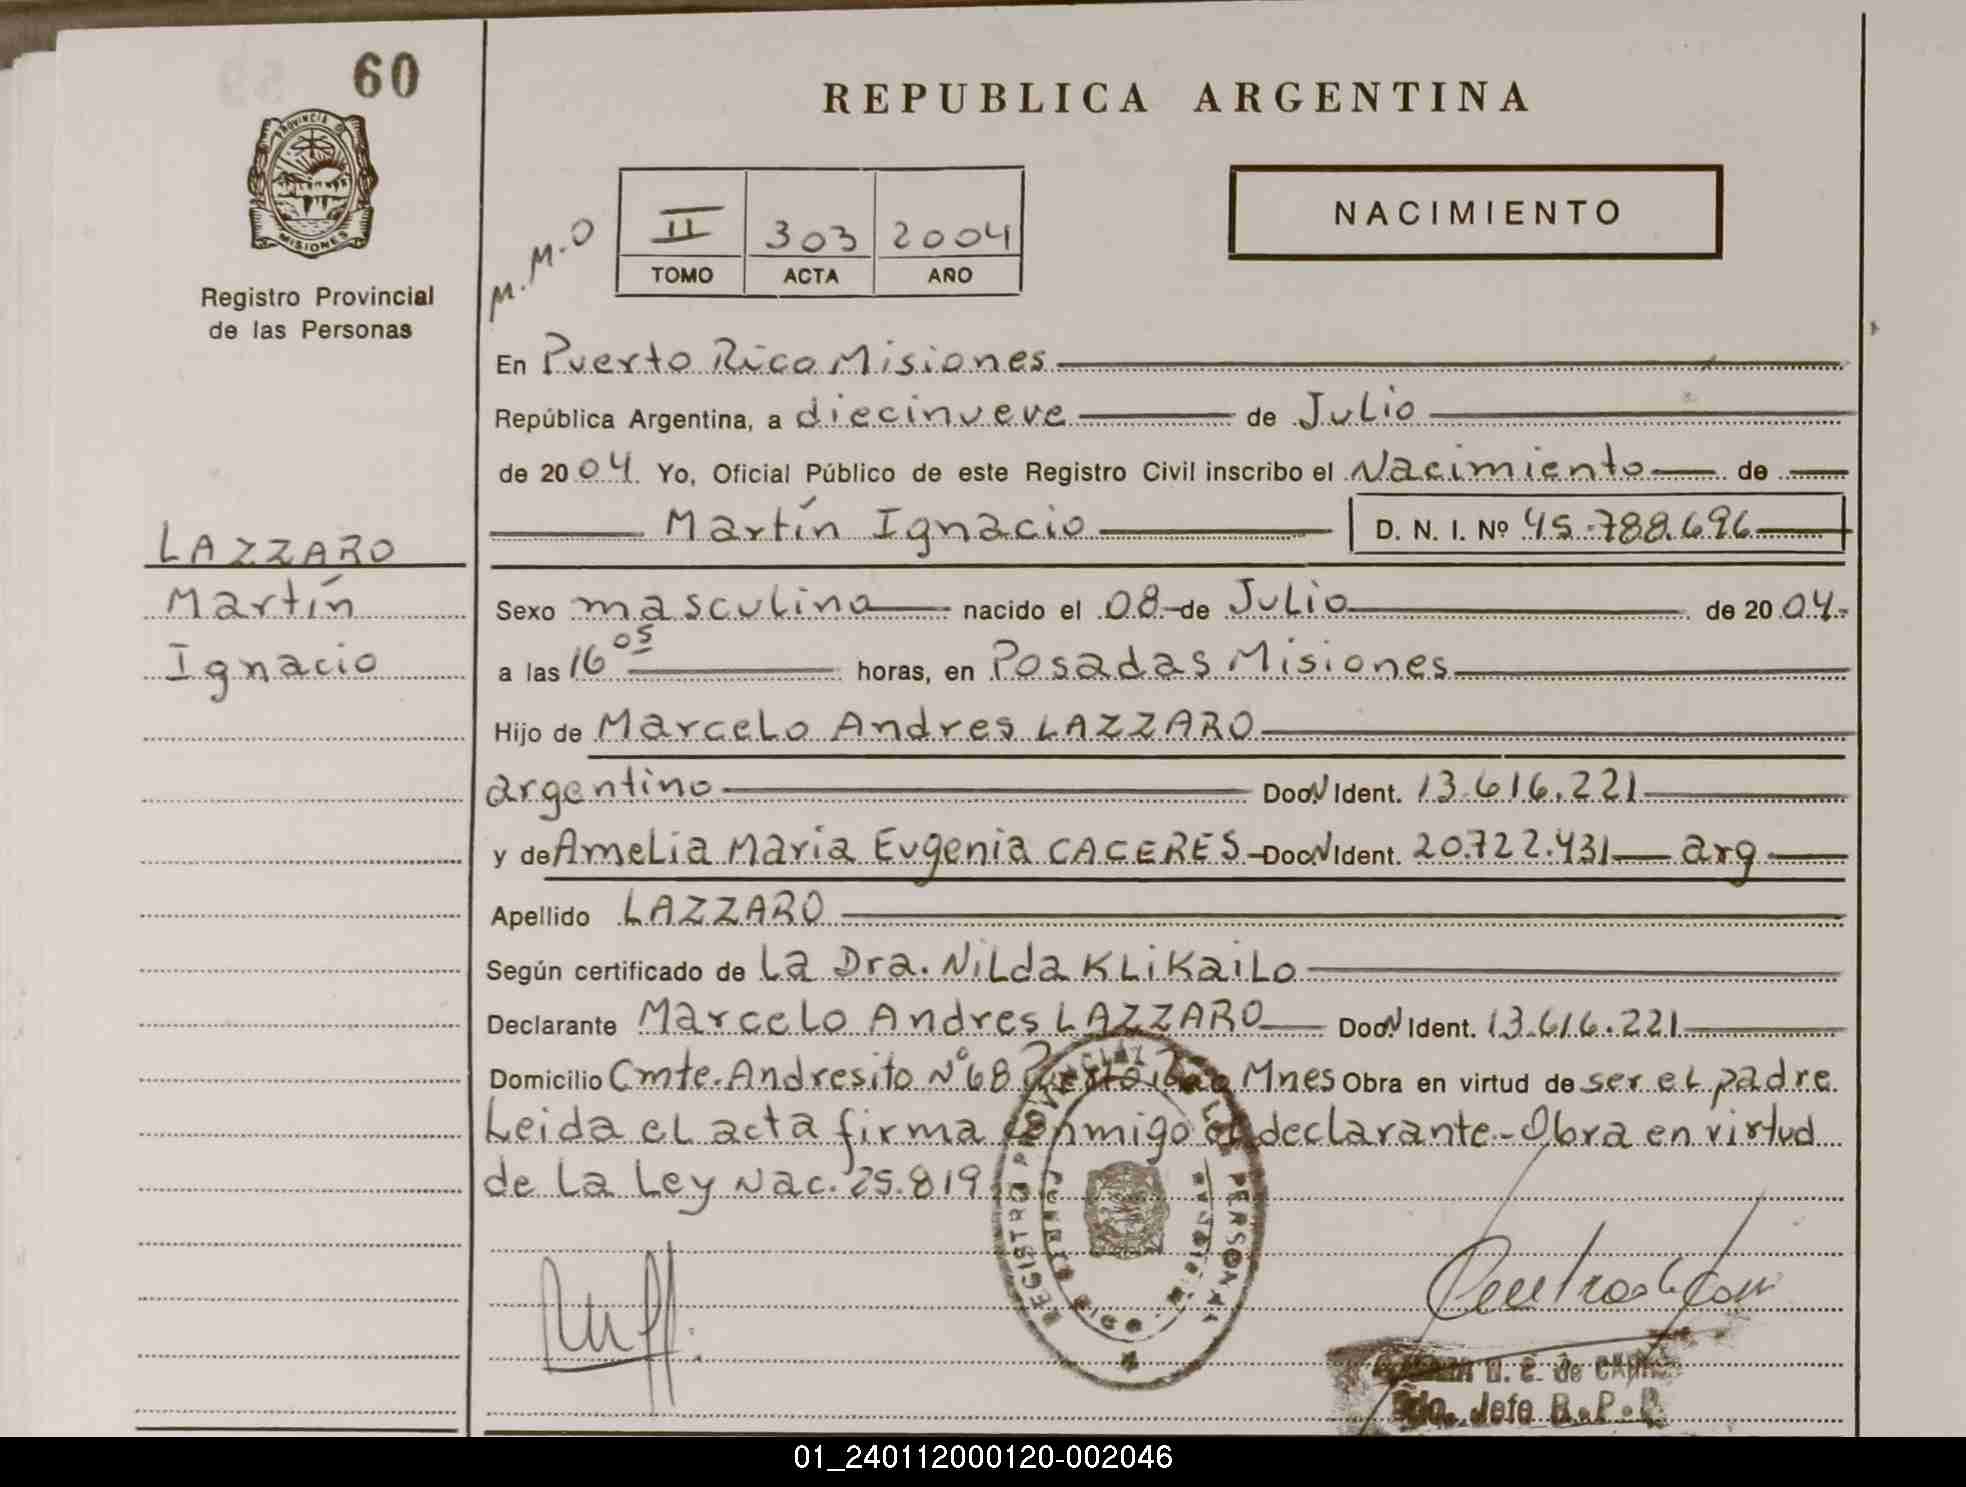 60
REPUBLICA ARGENTINA
PROVINCIA DE
MISIONES
Registro Provincial
de las Personas
M.M.O
II 303 2004
TOMO ACTA AÑO
NACIMIENTO
En Puerto Rico Misiones
República Argentina, a diecinueve de Julio
de 2004. Yo, Oficial Público de este Registro Civil inscribo el Nacimiento de
LAZZARO
Martín
Ignacio
Martín Ignacio D. N. I. Nº 45.788.696
Sexo masculino nacido el 08 de Julio de 2004.
a las 16 05 horas, en Posadas Misiones
Hijo de Marcelo Andres LAZZARO
argentino Doc.N Ident. 13.616.221
y de Amelia Maria Eugenia CACERES Doc.N Ident. 20.722.431 arg
Apellido LAZZARO
Según certificado de La Dra. Nilda KLiKaiLo
Declarante Marcelo Andres LAZZARO Doc.N Ident. 13.616.221
Domicilio Cmte. Andresito Nº 68 Puerto Rico Mnes Obra en virtud de ser el padre
Leida el acta firma conmigo el declarante - Obra en virtud
de La Ley Nac. 25.819
REGISTRO PROVINCIAL DE LAS PERSONAS
MISIONES
U. E. de
Jefe R.P.P.
01_240112000120-002046